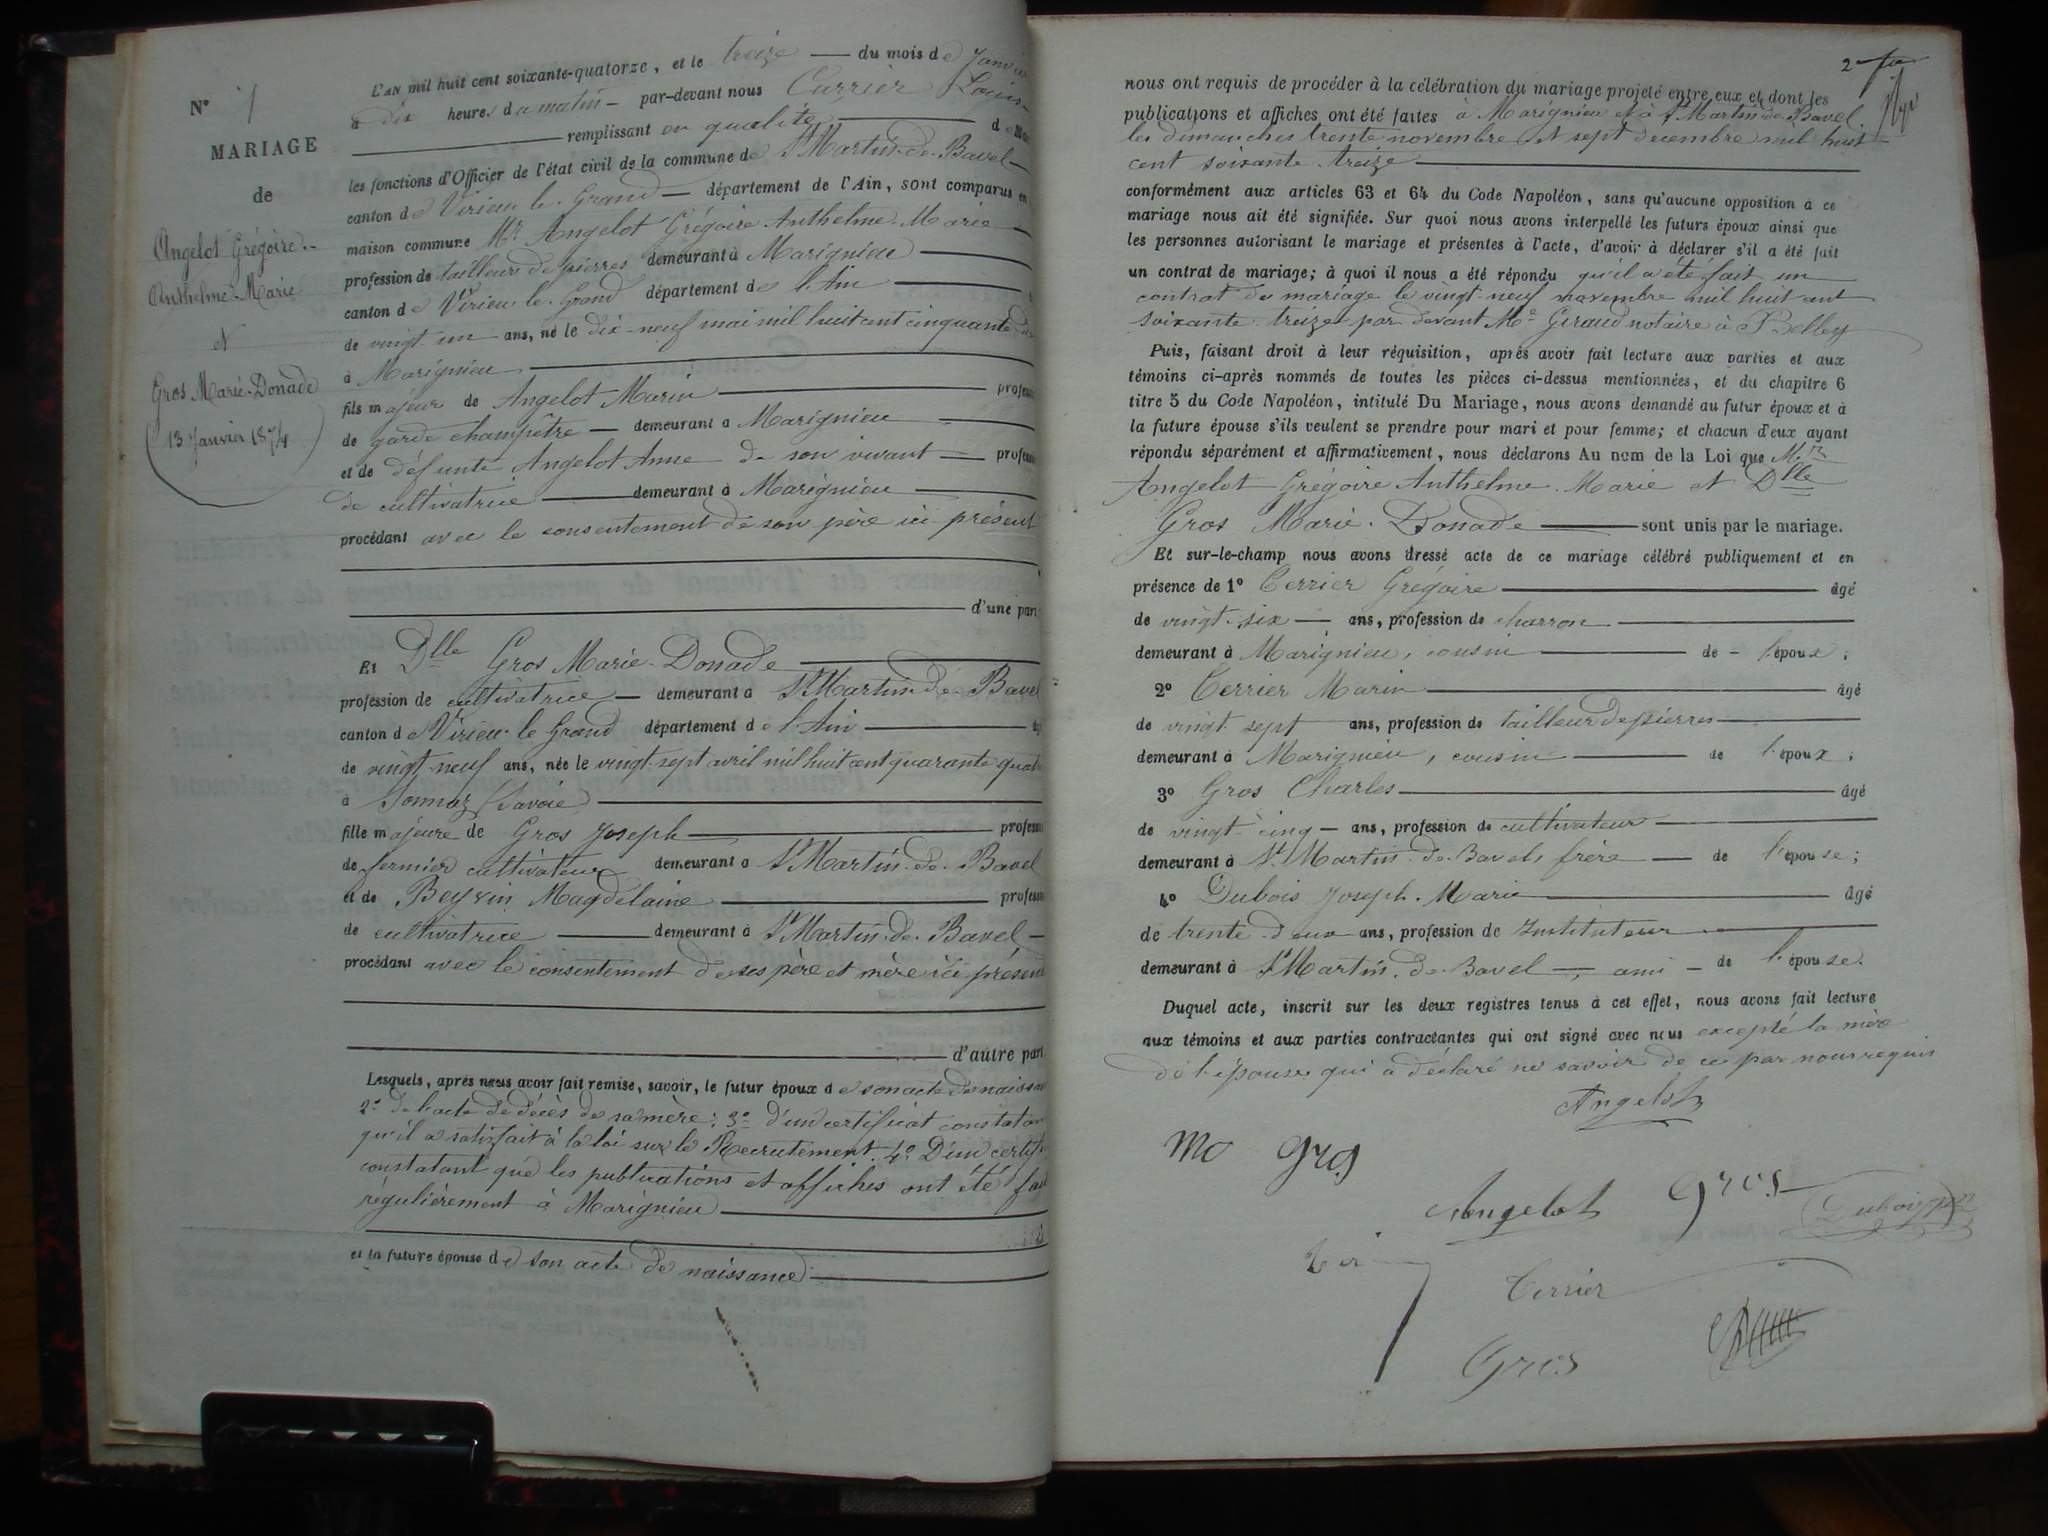 N° 1
MARIAGE
de
Angelot Grégoire-
Anthelme-Marie
et
Gros Marie-Donade
13 Janvier 1874
L'AN mil huit cent soixante-quatorze, et le treize — du mois de Janvier
à dix heures du matin — par-devant nous Carrier Louis-
remplissant en qualité de
les fonctions d'Officier de l'état civil de la commune de St Martin-de-Bavel
canton de Virieu-le-Grand — département de l'Ain, sont comparus en
maison commune Mr Angelot Grégoire Anthelme-Marie
profession de tailleur de pierres demeurant à Marignieu
canton de Virieu-le-Grand département de l'Ain
de vingt un ans, né le dix-neuf mai mil huit cent cinquante
à Marignieu
fils majeur de Angelot Marin — profess
de garde champêtre — demeurant à Marignieu
et de défunte Angelot Anne de son vivant — profess
de cultivatrice — demeurant à Marignieu
procédant avec le consentement de son père ici présent
d'une part
Et Dlle Gros Marie-Donade
profession de cultivatrice — demeurant à St Martin-de-Bavel
canton de Virieu-le-Grand département de l'Ain
de vingt-neuf ans, née le vingt-sept avril mil huit cent quarante quatre
à Sonnaz (Savoie)
fille majeure de Gros Joseph — profess
de fermier cultivateur demeurant à St Martin-de-Bavel
et de Beyrin Magdelaine — profess
de cultivatrice — demeurant à St Martin-de-Bavel —
procédant avec le consentement de ses père et mère ici présent
d'autre part.
Lesquels, après nous avoir fait remise, savoir, le futur époux de son acte de naissan
2° de l'acte de décès de sa mère: 3° d'un certificat constatan
qu'il a satisfait à la loi sur le Recrutement. 4° D'un certifi
constatant que les publications et affiches ont été fait
régulièrement à Marignieu
et la future épouse de son acte de naissance
2
nous ont requis de procéder à la célébration du mariage projeté entre eux et dont les
publications et affiches ont été faites à Marignieu et à St Martin-de-Bavel
les dimanches trente novembre et sept decembre mil huit
cent soixante treize
conformément aux articles 63 et 64 du Code Napoléon, sans qu'aucune opposition à ce
mariage nous ait été signifiée. Sur quoi nous avons interpellé les futurs époux ainsi que
les personnes autorisant le mariage et présentes à l'acte, d'avoir à déclarer s'il a été fait
un contrat de mariage; à quoi il nous a été répondu qu'il a été fait un
contrat de mariage le vingt-neuf novembre mil huit cent
soixante-treize par devant Me Giraud notaire à Belley
Puis, faisant droit à leur réquisition, après avoir fait lecture aux parties et aux
témoins ci-après nommés de toutes les pièces ci-dessus mentionnées, et du chapitre 6
titre 5 du Code Napoléon, intitulé Du Mariage, nous avons demandé au futur époux et à
la future épouse s'ils veulent se prendre pour mari et pour femme; et chacun d'eux ayant
répondu séparément et affirmativement, nous déclarons Au nom de la Loi que Mr
Angelot Grégoire Anthelme-Marie et Dlle
Gros Marie-Donade — sont unis par le mariage.
Et sur-le-champ nous avons dressé acte de ce mariage célébré publiquement et en
présence de 1° Terrier Grégoire — âgé
de vingt-six — ans, profession de charron
demeurant à Marignieu, cousin — de - l'époux;
2° Terrier Marin — âgé
de vingt sept ans, profession de tailleur de pierres
demeurant à Marignieu, cousin — de l'époux;
3° Gros Charles — âgé
de vingt-cinq — ans, profession de cultivateur
demeurant à St Martin-de-Bavel, frère — de l'épouse;
4° Dubois Joseph-Marie — âgé
de trente-deux ans, profession de Instituteur
demeurant à St Martin-de-Bavel —, ami — de l'épouse.
Duquel acte, inscrit sur les deux registres tenus à cet effet, nous avons fait lecture
aux témoins et aux parties contractantes qui ont signé avec nous excepté la mère
de l'épouse qui a déclaré ne savoir de ce par nous requis
Angelot
mo gros
Angelot Gros Dubois
Terrier
Gros